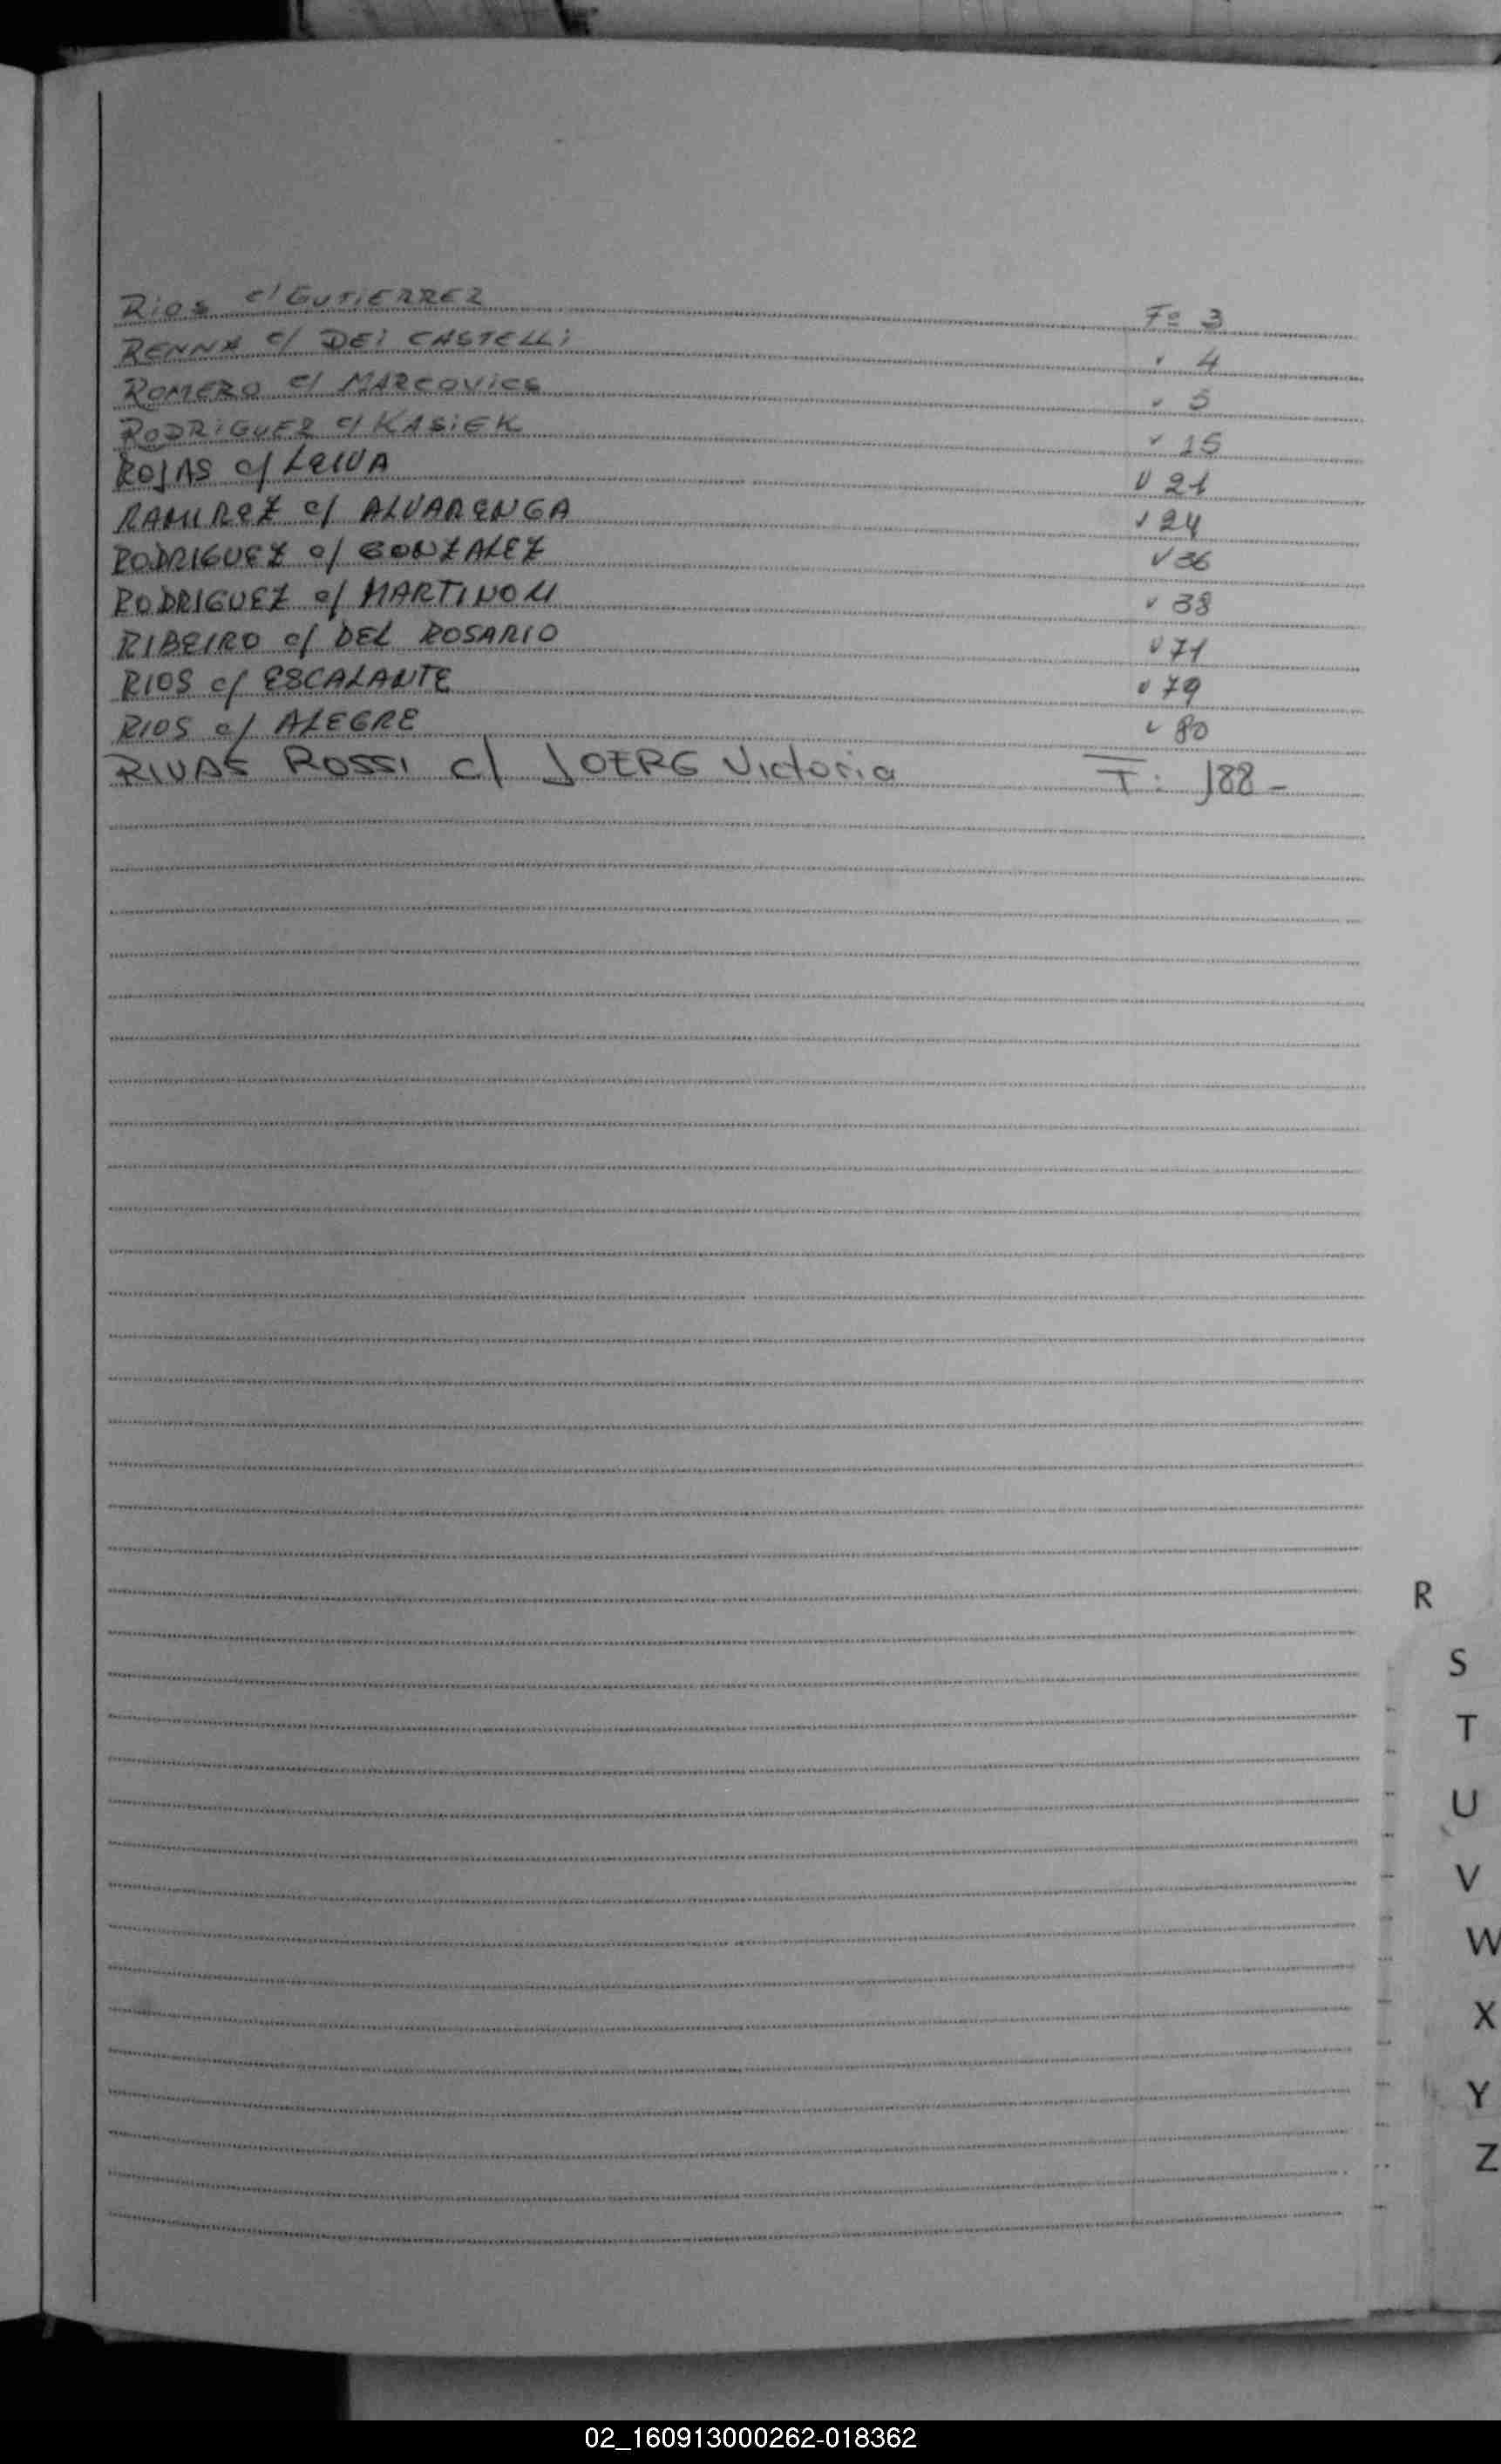 Rios c/ GUTIERREZ Fº 3
RENNA c/ DEI CASTELLI " 4
ROMERO c/ MARCOVICS " 5
RODRIGUEZ c/ KASIEK " 15
ROJAS c/ LEIVA " 21
RAMIREZ c/ ALVARENGA " 24
RODRIGUEZ c/ GONZALEZ " 36
RODRIGUEZ c/ MARTINOLI " 38
RIBEIRO c/ DEL ROSARIO " 71
RIOS c/ ESCALANTE " 79
RIOS c/ ALEGRE " 80
RIVAS ROSSI c/ JOERG Victoria 188 -
R
S
T
U
V
W
X
Y
Z
02_160913000262-018362